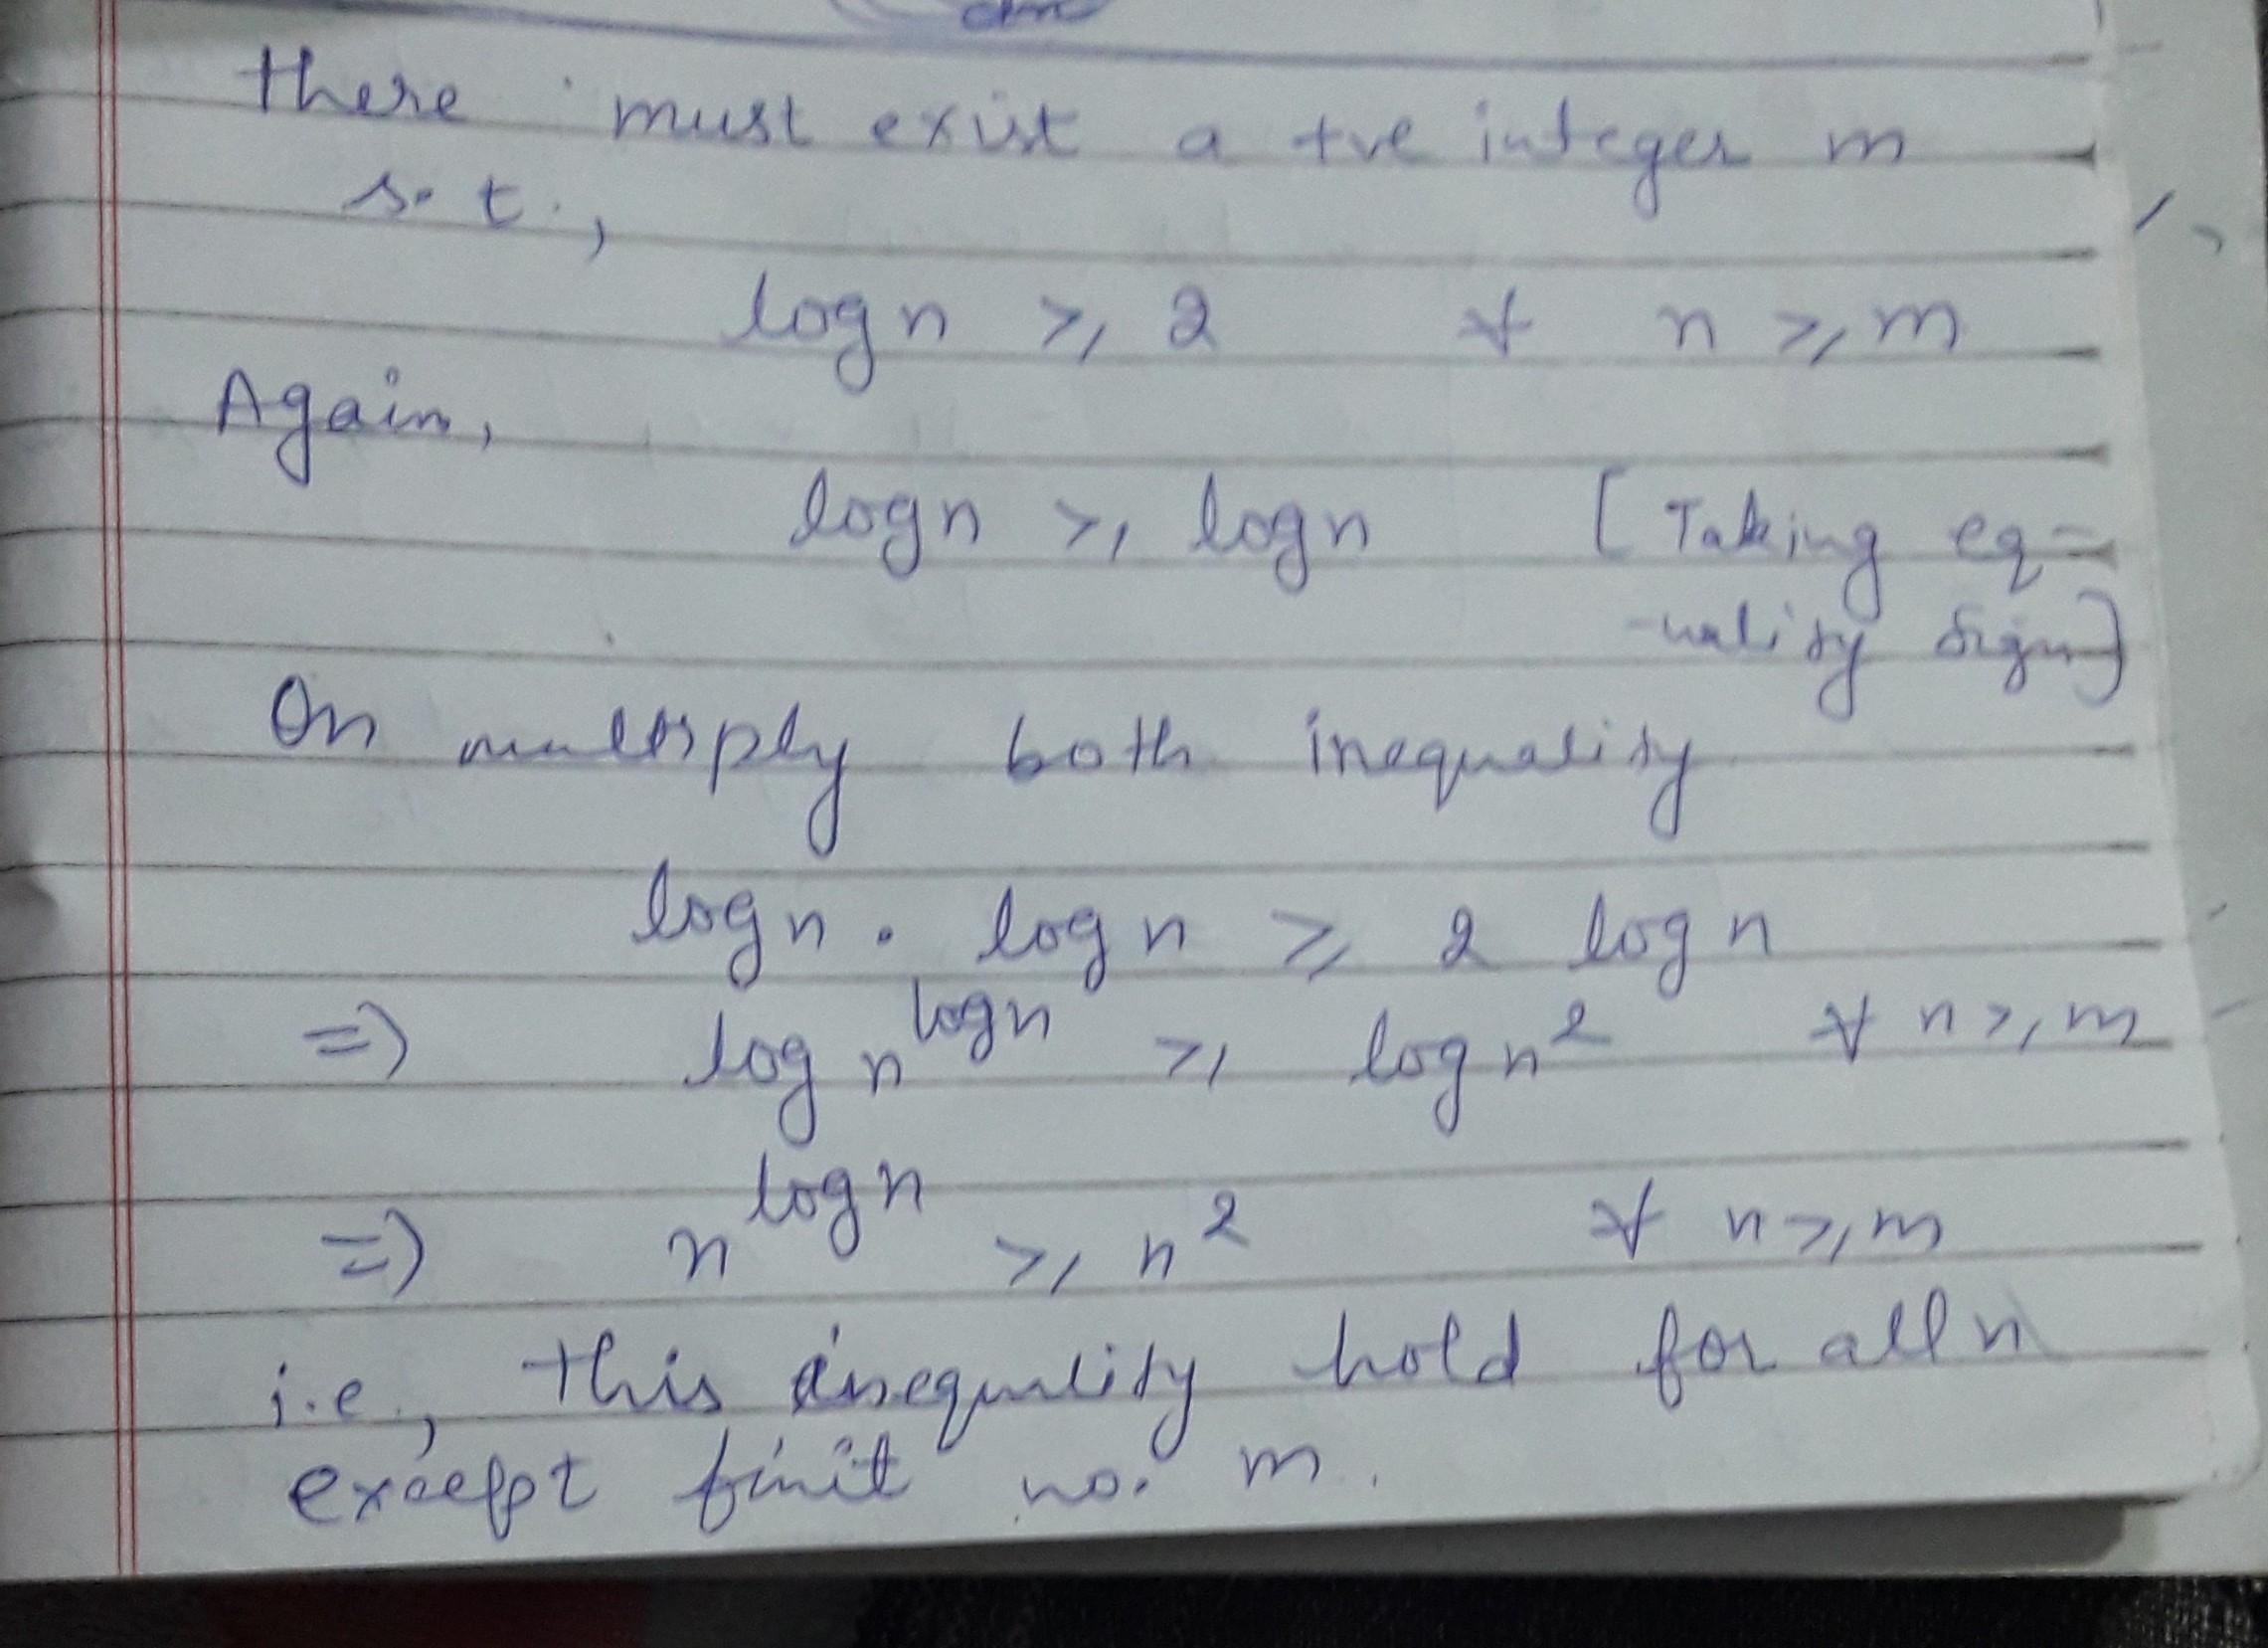 there must exist a +ve integer m
s.t.,
log n ≥ 2 ∀ n ≥ m
Again,
log n ≥ log n [Taking eq-
-uality sign]
On multiply both inequality
log n . log n ≥ 2 log n
⇒ log n^log n ≥ log n² ∀ n ≥ m
⇒ n^log n ≥ n² ∀ n ≥ m
i.e., this inequality hold for all n
except finit no. m.